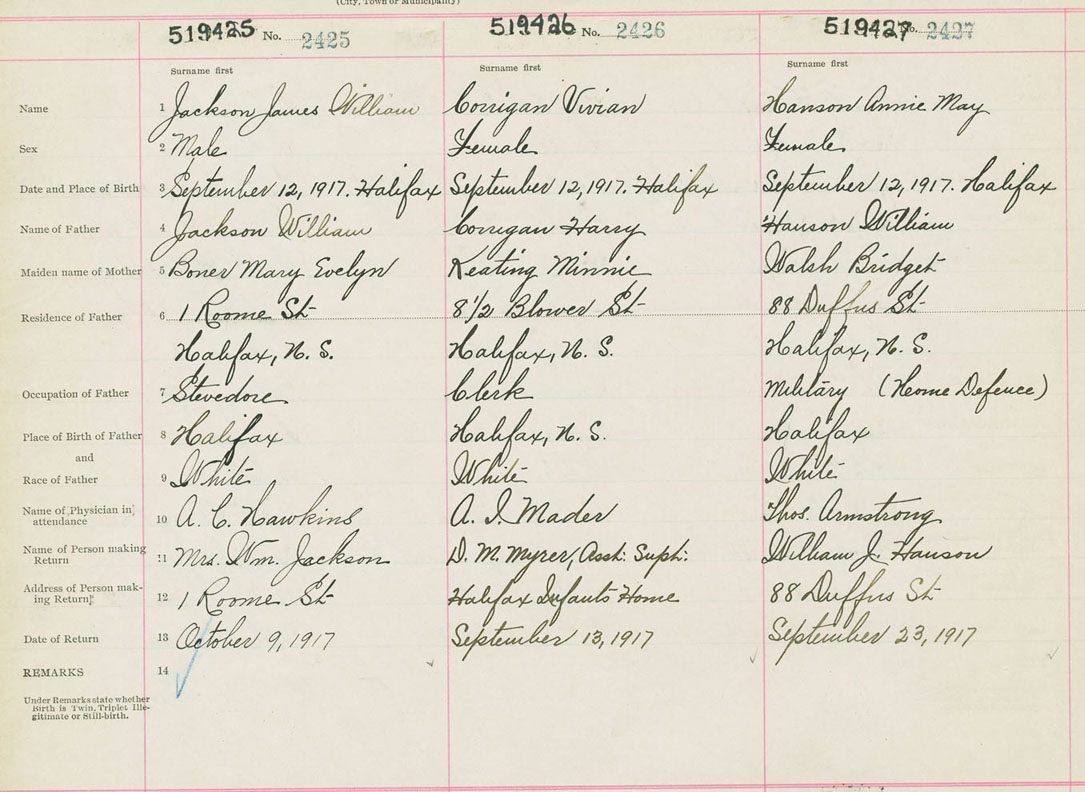 (City, Town or Municipality)
519425 No. 2425 519426 No. 2426 519427 No. 2427
Surname first Surname first Surname first
Name 1 Jackson James William Corrigan Vivian Hanson Annie May
Sex 2 Male Female Female
Date and Place of Birth 3 September 12, 1917. Halifax September 12, 1917. Halifax September 12, 1917. Halifax
Name of Father 4 Jackson William Corrigan Harry Hanson William
Maiden name of Mother 5 Boner Mary Evelyn Keating Minnie Walsh Bridget
Residence of Father 6 1 Roome St 8 1/2 Blower St 88 Duffus St
Halifax, N. S. Halifax, N. S. Halifax, N. S.
Occupation of Father 7 Stevedore Clerk Military (Home Defence)
Place of Birth of Father 8 Halifax Halifax, N. S. Halifax
and
Race of Father 9 White White White
Name of Physician in
attendance 10 A. C. Hawkins A. I. Mader Thos. Armstrong
Name of Person making
Return 11 Mrs. Wm. Jackson D. M. Myrer, Asst: Supt: William J. Hanson
Address of Person mak-
ing Return 12 1 Roome St Halifax Infants Home 88 Duffus St
Date of Return 13 October 9, 1917 September 13, 1917 September 23, 1917
REMARKS 14
Under Remarks state whether
Birth is Twin, Triplet Ille-
gitimate or Still-birth.